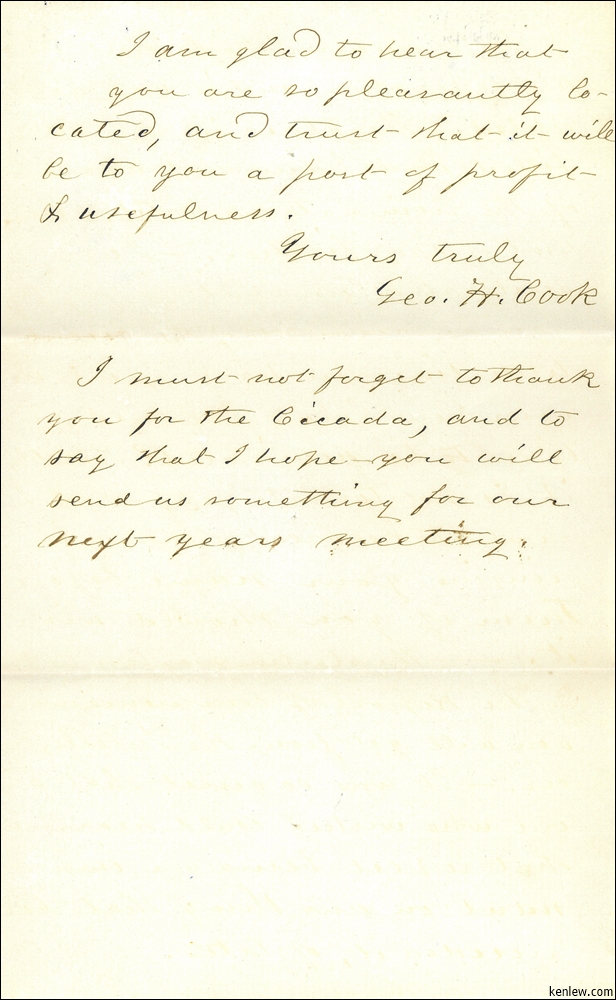 I am glad to hear that
you are so pleasantly lo-
cated, and trust that it will
be to you a post of profit
& usefulness.
Yours truly
Geo. H. Cook
I must not forget to thank
you for the Cicada, and to
say that I hope you will
send us something for our
next years meeting.
kenlew.com